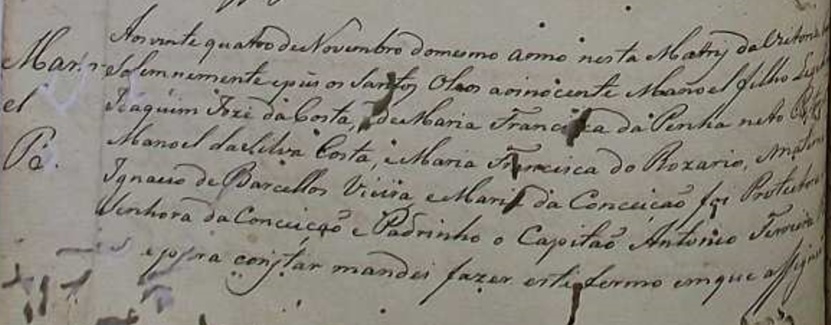 Aos vinte quatro de Novembro do mesmo anno nesta Matriz da Victoria
Manoel
solemnemente e pus os Santos Oleos ao inocente Manoel filho Legi
Joaquim Jozé da Costa, e de Maria Francisca da Penha neto
Manoel da Silva Costa, e Maria Francisca do Rozario,
Pº.
Ignacio de Barcellos Vieira, e Maria da Conceição foi Protectora
Senhora da Conceição e Padrinho o Capitaõ Antonio Ferreira
e para constar mandei fazer este termo em que assignei